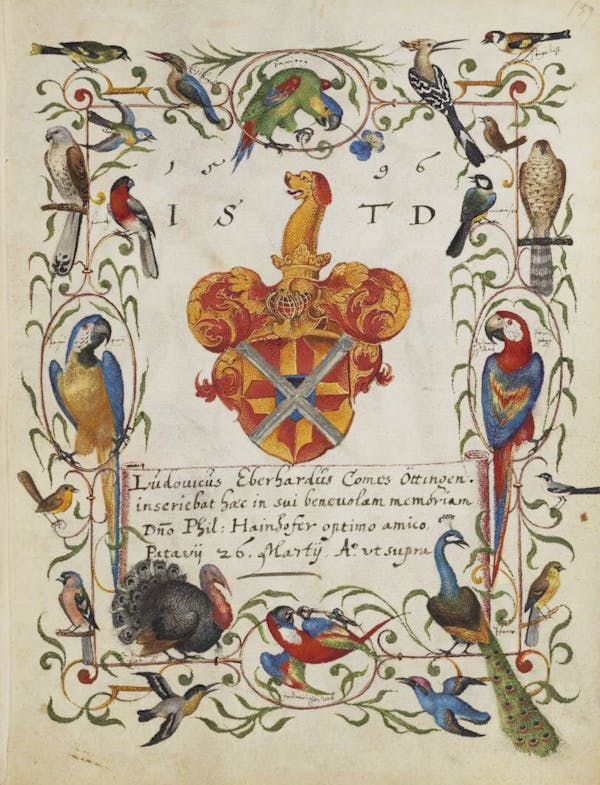 1 5 9 6
I S T D
Ludovicus Eberhardus Comes Öttingen.
inscriebat hæc in sui benevolam memoriam
Dño Phil: Hainhofer optimo amico.
Patavij 26. Martij Aº. vt supra